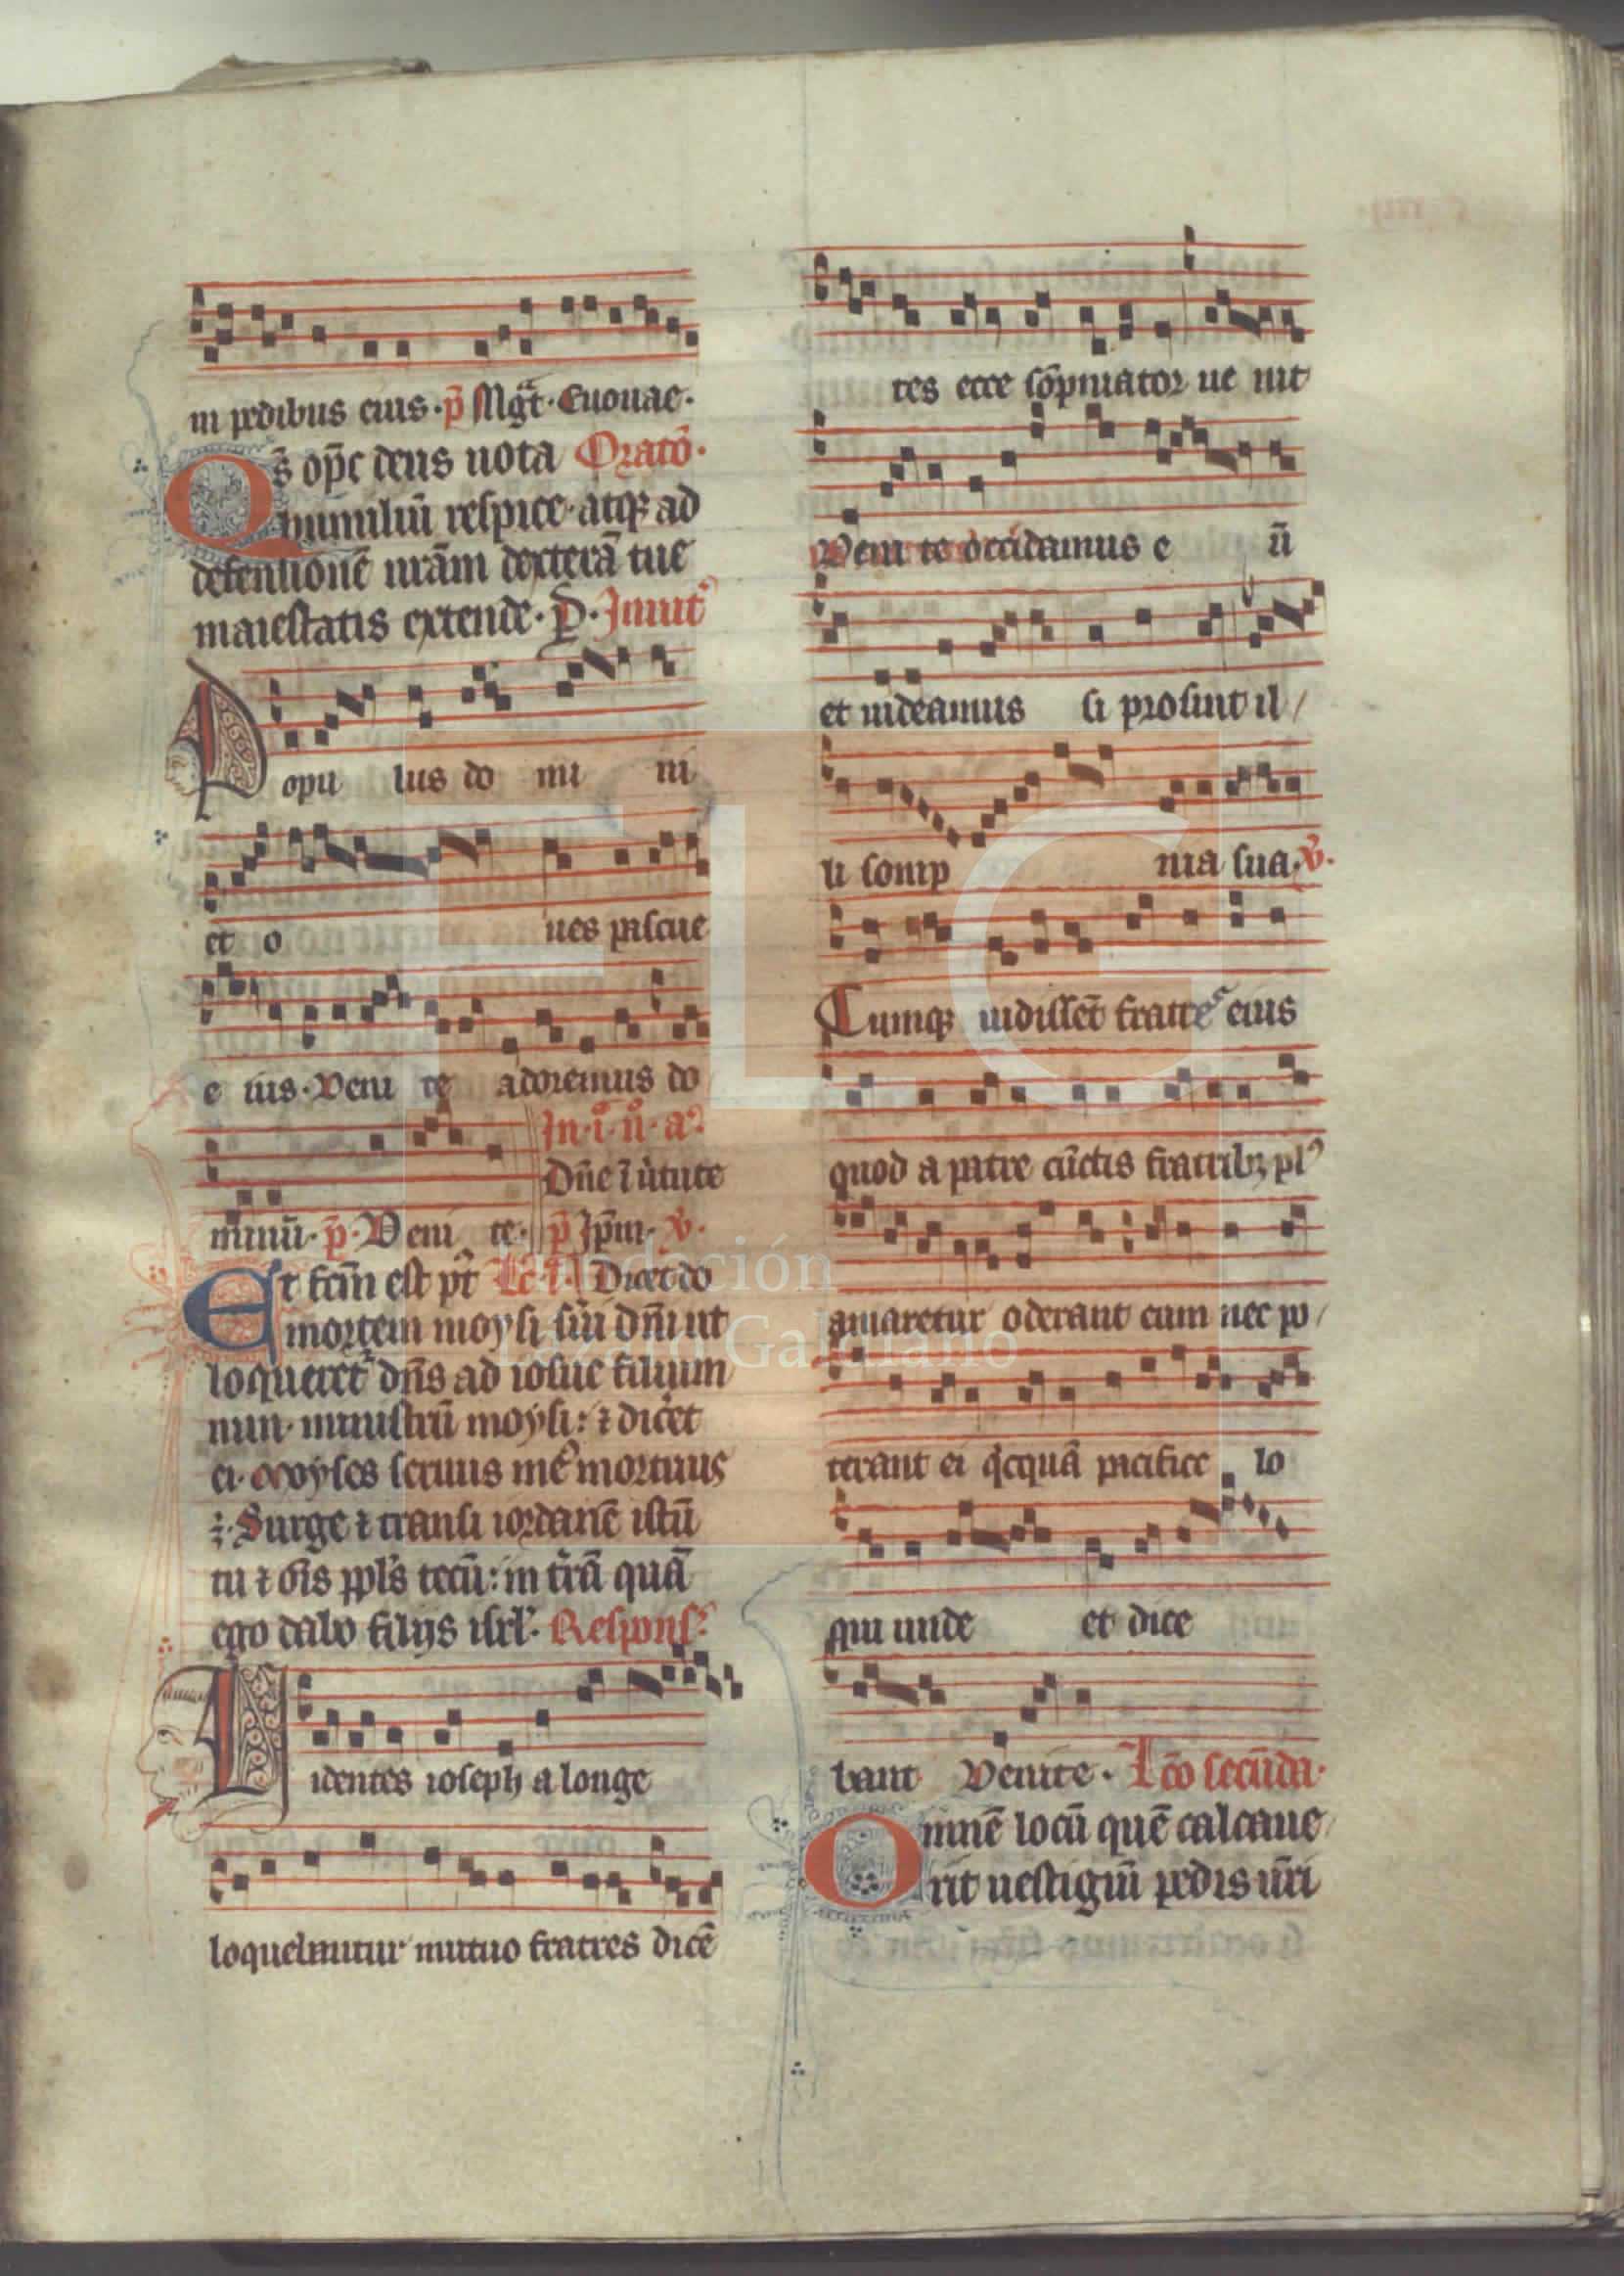 in pedibus eius · p̄ Mgt̄ · Euouae ·
Qs̄ op̄c deus uota Oratō ·
humiliū respice · atqꝫ ad
defensionē nrām dexterā tue
maiestatis extende · P̄ · Inuit
Popu lus do mi ni
et o ues pascue
e ius · Veni te adoremus do
In · i · n̄ · a
Dn̄e ī uirtute
minū · p̄ · Veni te · p̄ Ip̄m · v̄ ·
Et fcm̄ est pt̄ Lc · i · Dicet do
mortem moysi sui dn̄i ut
loqueret dn̄s ad iosue filium
nun · ministrū moysi : ⁊ dicet
ei · Moyses seruus me mortuus
Surge ⁊ transi iordanē istū
tu ⁊ oīs ppls tecū : in trā quā
ego dabo filijs isrl · Respons
Uidentes ioseph a longe
loquebantur mutuo fratres dicē
tes ecce sōpniator ue nit
Veni te occidamus e ū
et uideamus si prosint il /
li somp nia sua · v̄ ·
Cumqꝫ uidissēt fratres eius
quod a patre cūctis fratribꝫ pl
amaretur oderant eum nec po /
terant ei qcquā pacifice lo
qui unde et dice
bant Venite · Lco secūda ·
Omnē locū quē calcaue
rit uestigiū pedis ur̄i
FLG
Fundación
Lázaro Galdiano